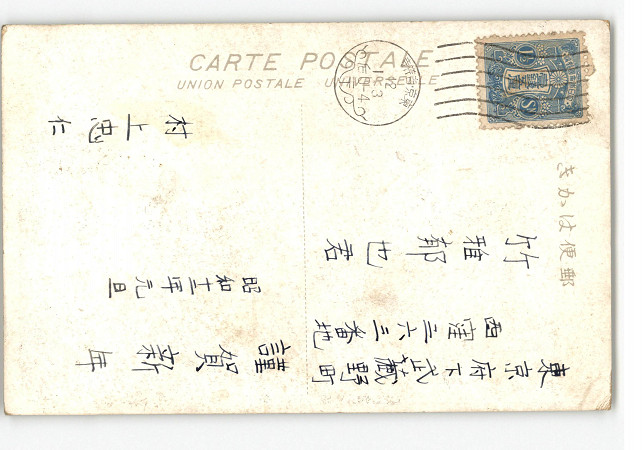 CARTE POSTALE
UNION POSTALE UNIVERSELLE
郵便はかき
東京府下武蔵野町
西窪二六三番地
竹 也君
謹賀新年
昭和十二年元旦
村上忠仁